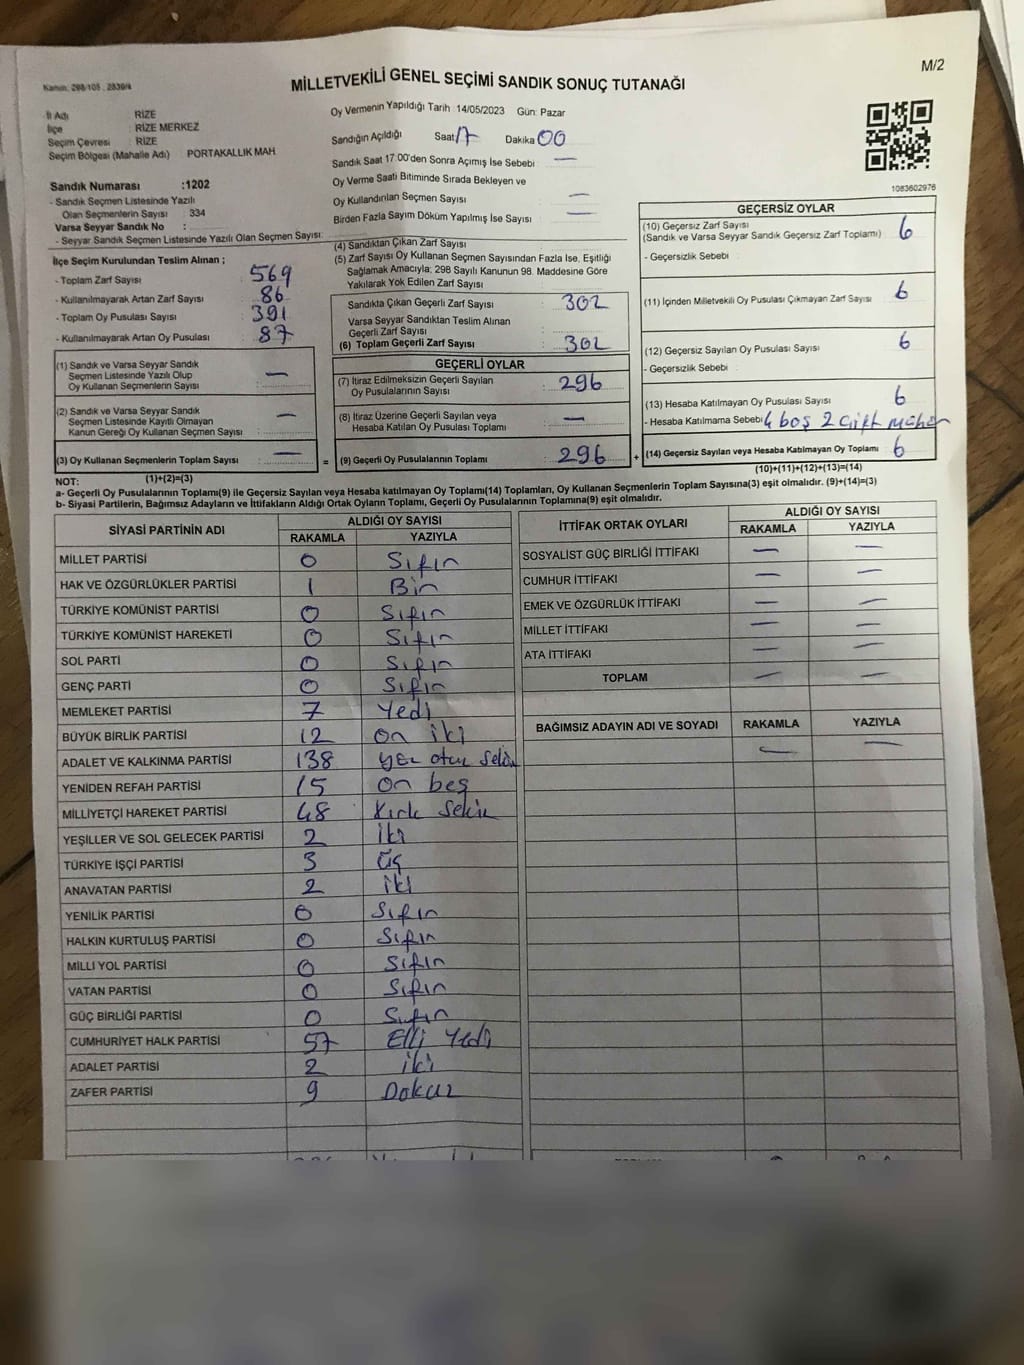 M/2
Kanun: 298/105 , 2839/4
MİLLETVEKİLİ GENEL SEÇİMİ SANDIK SONUÇ TUTANAĞI
İl Adı : RİZE
İlçe : RİZE MERKEZ
Seçim Çevresi : RİZE
Seçim Bölgesi (Mahalle Adı) PORTAKALLIK MAH.
Sandık Numarası :1202
- Sandık Seçmen Listesinde Yazılı
Olan Seçmenlerin Sayısı : 334
Varsa Seyyar Sandık No :
- Seyyar Sandık Seçmen Listesinde Yazılı Olan Seçmen Sayısı:
Oy Vermenin Yapıldığı Tarih 14/05/2023 Gün: Pazar
Sandığın Açıldığı Saat 17 Dakika 00
Sandık Saat 17:00'den Sonra Açımış İse Sebebi : —
Oy Verme Saati Bitiminde Sırada Bekleyen ve
Oy Kullandırılan Seçmen Sayısı : —
Birden Fazla Sayım Döküm Yapılmış İse Sayısı : —
1083602976
İlçe Seçim Kurulundan Teslim Alınan ;
- Toplam Zarf Sayısı : 569
- Kullanılmayarak Artan Zarf Sayısı : 86
- Toplam Oy Pusulası Sayısı : 391
- Kullanılmayarak Artan Oy Pusulası : 87
(1) Sandık ve Varsa Seyyar Sandık
Seçmen Listesinde Yazılı Olup
Oy Kullanan Seçmenlerin Sayısı : —
(2) Sandık ve Varsa Seyyar Sandık
Seçmen Listesinde Kayıtlı Olmayan
Kanun Gereği Oy Kullanan Seçmen Sayısı : —
(3) Oy Kullanan Seçmenlerin Toplam Sayısı : —
(1)+(2)=(3)
(4) Sandıktan Çıkan Zarf Sayısı :
(5) Zarf Sayısı Oy Kullanan Seçmen Sayısından Fazla İse, Eşitliği
Sağlamak Amacıyla; 298 Sayılı Kanunun 98. Maddesine Göre
Yakılarak Yok Edilen Zarf Sayısı :
Sandıkta Çıkan Geçerli Zarf Sayısı : 302
Varsa Seyyar Sandıktan Teslim Alınan
Geçerli Zarf Sayısı :
(6) Toplam Geçerli Zarf Sayısı : 302
GEÇERLİ OYLAR
(7) İtiraz Edilmeksizin Geçerli Sayılan
Oy Pusulalarının Sayısı : 296
(8) İtiraz Üzerine Geçerli Sayılan veya
Hesaba Katılan Oy Pusulası Toplamı : —
= (9) Geçerli Oy Pusulalarının Toplamı : 296
GEÇERSİZ OYLAR
(10) Geçersiz Zarf Sayısı : 6
(Sandık ve Varsa Seyyar Sandık Geçersiz Zarf Toplamı)
- Geçersizlik Sebebi :
(11) İçinden Milletvekili Oy Pusulası Çıkmayan Zarf Sayısı : 6
(12) Geçersiz Sayılan Oy Pusulası Sayısı : 6
- Geçersizlik Sebebi :
(13) Hesaba Katılmayan Oy Pusulası Sayısı : 6
- Hesaba Katılmama Sebebi 4 boş 2 çift mühür
+ (14) Geçersiz Sayılan veya Hesaba Katılmayan Oy Toplamı 6
(10)+(11)+(12)+(13)=(14)
NOT:
a- Geçerli Oy Pusulalarının Toplamı(9) ile Geçersiz Sayılan veya Hesaba katılmayan Oy Toplamı(14) Toplamları, Oy Kullanan Seçmenlerin Toplam Sayısına(3) eşit olmalıdır. (9)+(14)=(3)
b- Siyasi Partilerin, Bağımsız Adayların ve İttifakların Aldığı Ortak Oyların Toplamı, Geçerli Oy Pusulalarının Toplamına(9) eşit olmalıdır.
SİYASİ PARTİNİN ADI ALDIĞI OY SAYISI
RAKAMLA YAZIYLA
MİLLET PARTİSİ 0 Sıfır
HAK VE ÖZGÜRLÜKLER PARTİSİ 1 Bir
TÜRKİYE KOMÜNİST PARTİSİ 0 Sıfır
TÜRKİYE KOMÜNİST HAREKETİ 0 Sıfır
SOL PARTİ 0 Sıfır
GENÇ PARTİ 0 Sıfır
MEMLEKET PARTİSİ 7 Yedi
BÜYÜK BİRLİK PARTİSİ 12 on iki
ADALET VE KALKINMA PARTİSİ 138 yüz otuz sekiz
YENİDEN REFAH PARTİSİ 15 on beş
MİLLİYETÇİ HAREKET PARTİSİ 48 Kırk sekiz
YEŞİLLER VE SOL GELECEK PARTİSİ 2 İki
TÜRKİYE İŞÇİ PARTİSİ 3 Üç
ANAVATAN PARTİSİ 2 iki
YENİLİK PARTİSİ 0 Sıfır
HALKIN KURTULUŞ PARTİSİ 0 Sıfır
MİLLİ YOL PARTİSİ 0 Sıfır
VATAN PARTİSİ 0 Sıfır
GÜÇ BİRLİĞİ PARTİSİ 0 Sıfır
CUMHURİYET HALK PARTİSİ 57 Elli Yedi
ADALET PARTİSİ 2 iki
ZAFER PARTİSİ 9 Dokuz
İTTİFAK ORTAK OYLARI ALDIĞI OY SAYISI
RAKAMLA YAZIYLA
SOSYALİST GÜÇ BİRLİĞİ İTTİFAKI — —
CUMHUR İTTİFAKI — —
EMEK VE ÖZGÜRLÜK İTTİFAKI — —
MİLLET İTTİFAKI — —
ATA İTTİFAKI — —
TOPLAM — —
BAĞIMSIZ ADAYIN ADI VE SOYADI RAKAMLA YAZIYLA
— —